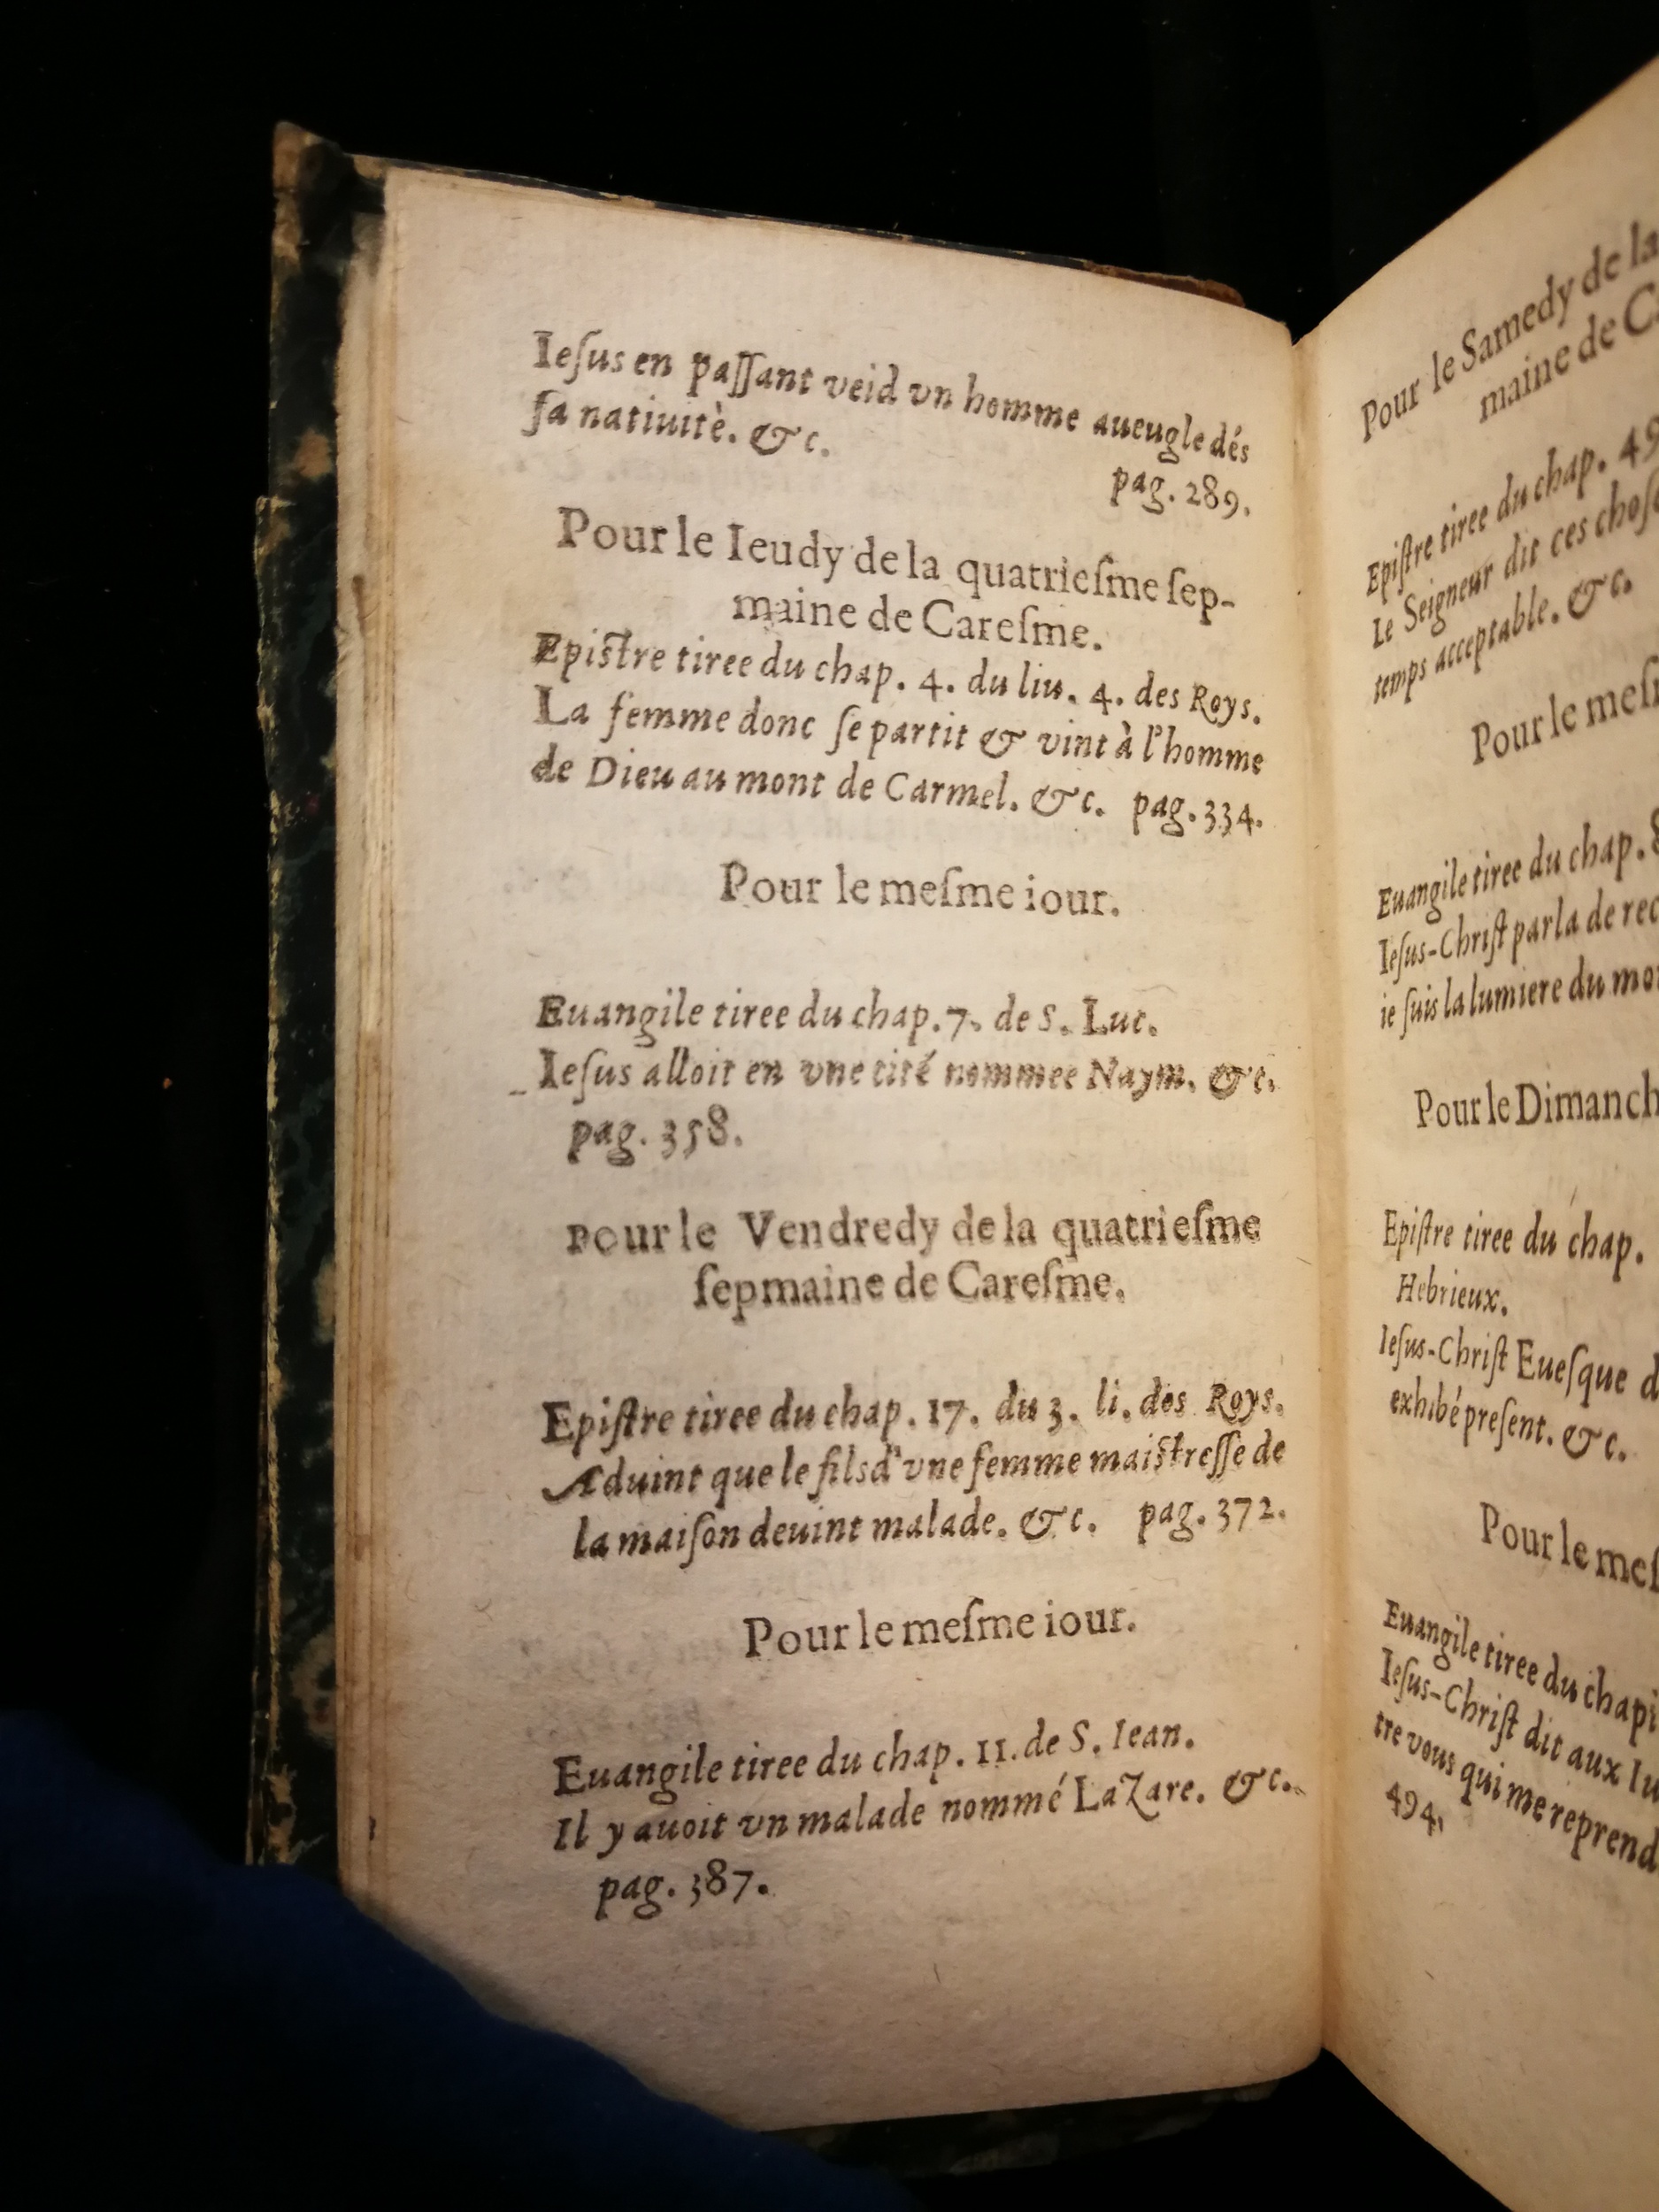 Ieſus en paſſant veid vn homme aueugle dés
ſa natiuitè. &c.
pag. 289.
Pour le Ieudy de la quatrieſme ſep-
maine de Careſme.
Epiſtre tiree du chap. 4. du liu. 4. des Roys.
La femme donc ſe partit & vint à l'homme
de Dieu au mont de Carmel. &c. pag. 334.
Pour le meſme iour.
Euangile tiree du chap. 7. de S. Luc.
Ieſus alloit en vne cité nommee Naym. &c.
pag. 358.
Pour le Vendredy de la quatrieſme
ſepmaine de Careſme.
Epiſtre tiree du chap. 17. du 3. li. des Roys.
Aduint que le fils d'vne femme maiſtreſſe de
la maiſon deuint malade. &c. pag. 372.
Pour le meſme iour.
Euangile tiree du chap. 11. de S. Iean.
Il y auoit vn malade nommé LaZare. &c.
pag. 387.
Pour le Samedy de la
maine de
Epiſtre tiree du chap. 49
Le Seigneur dit ces
temps acceptable. &c.
Pour le
Euangile tiree du chap. 8
Ieſus-Chriſt parla de
ie ſuis la lumiere du
Pour le
Epiſtre tiree du chap.
Hebrieux.
Ieſus-Chriſt Eueſque
exhibé preſent. &c.
Pour le
Euangile tiree du
Ieſus-Chriſt dit aux
tre vous qui me
494.